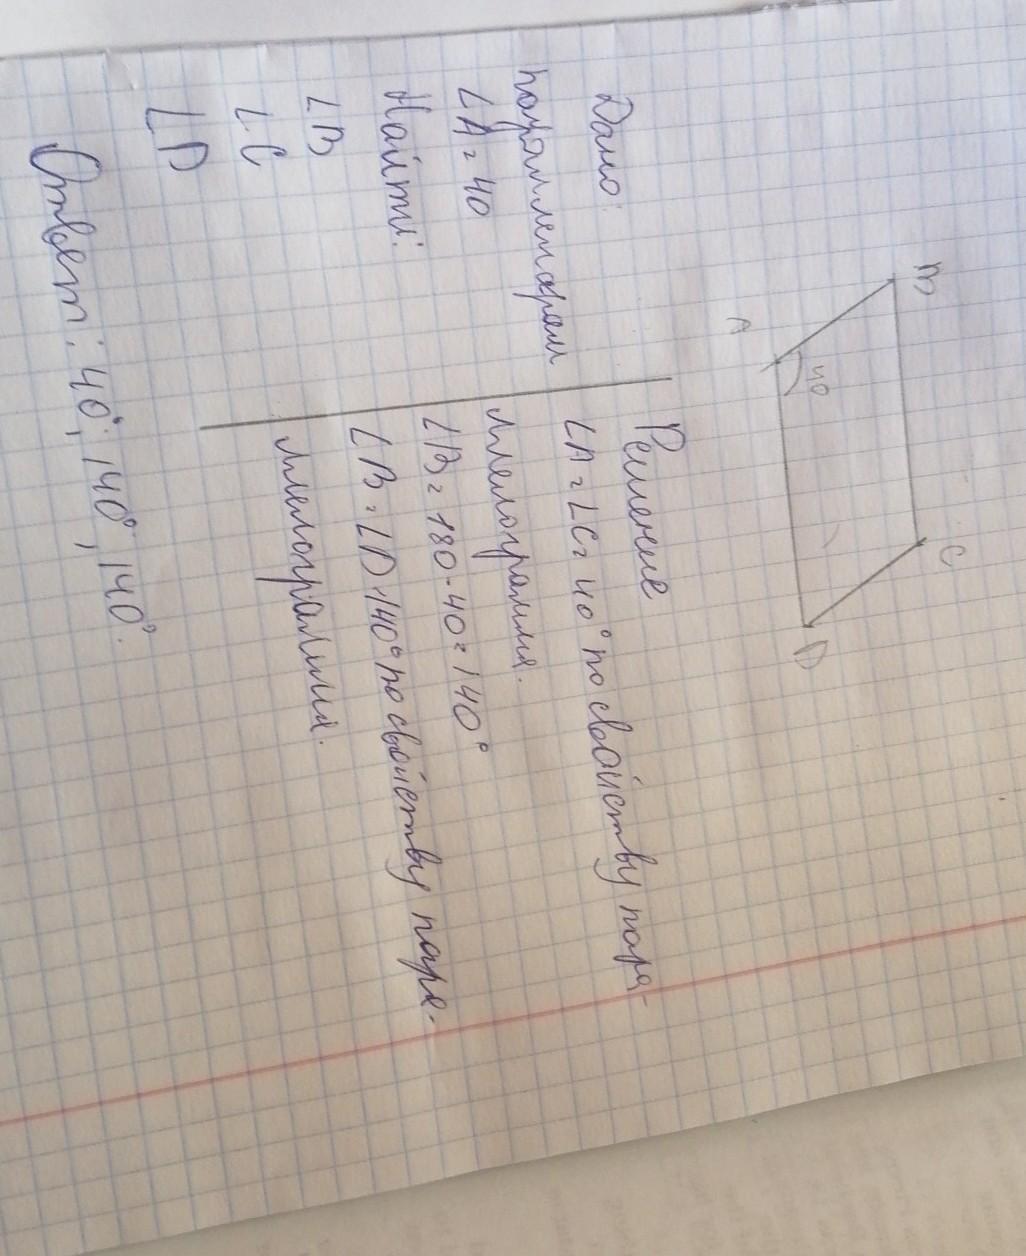 B
C
A
40
D
Дано:
параллелограм
∠A = 40
Найти:
∠B
∠C
∠D
Решение
∠A = ∠C = 40° по свойству пара-
ллелограмма.
∠B = 180 - 40 = 140°
∠B = ∠D = 140° по свойству пара-
ллелограмма.
Ответ: 40°, 140°, 140°.